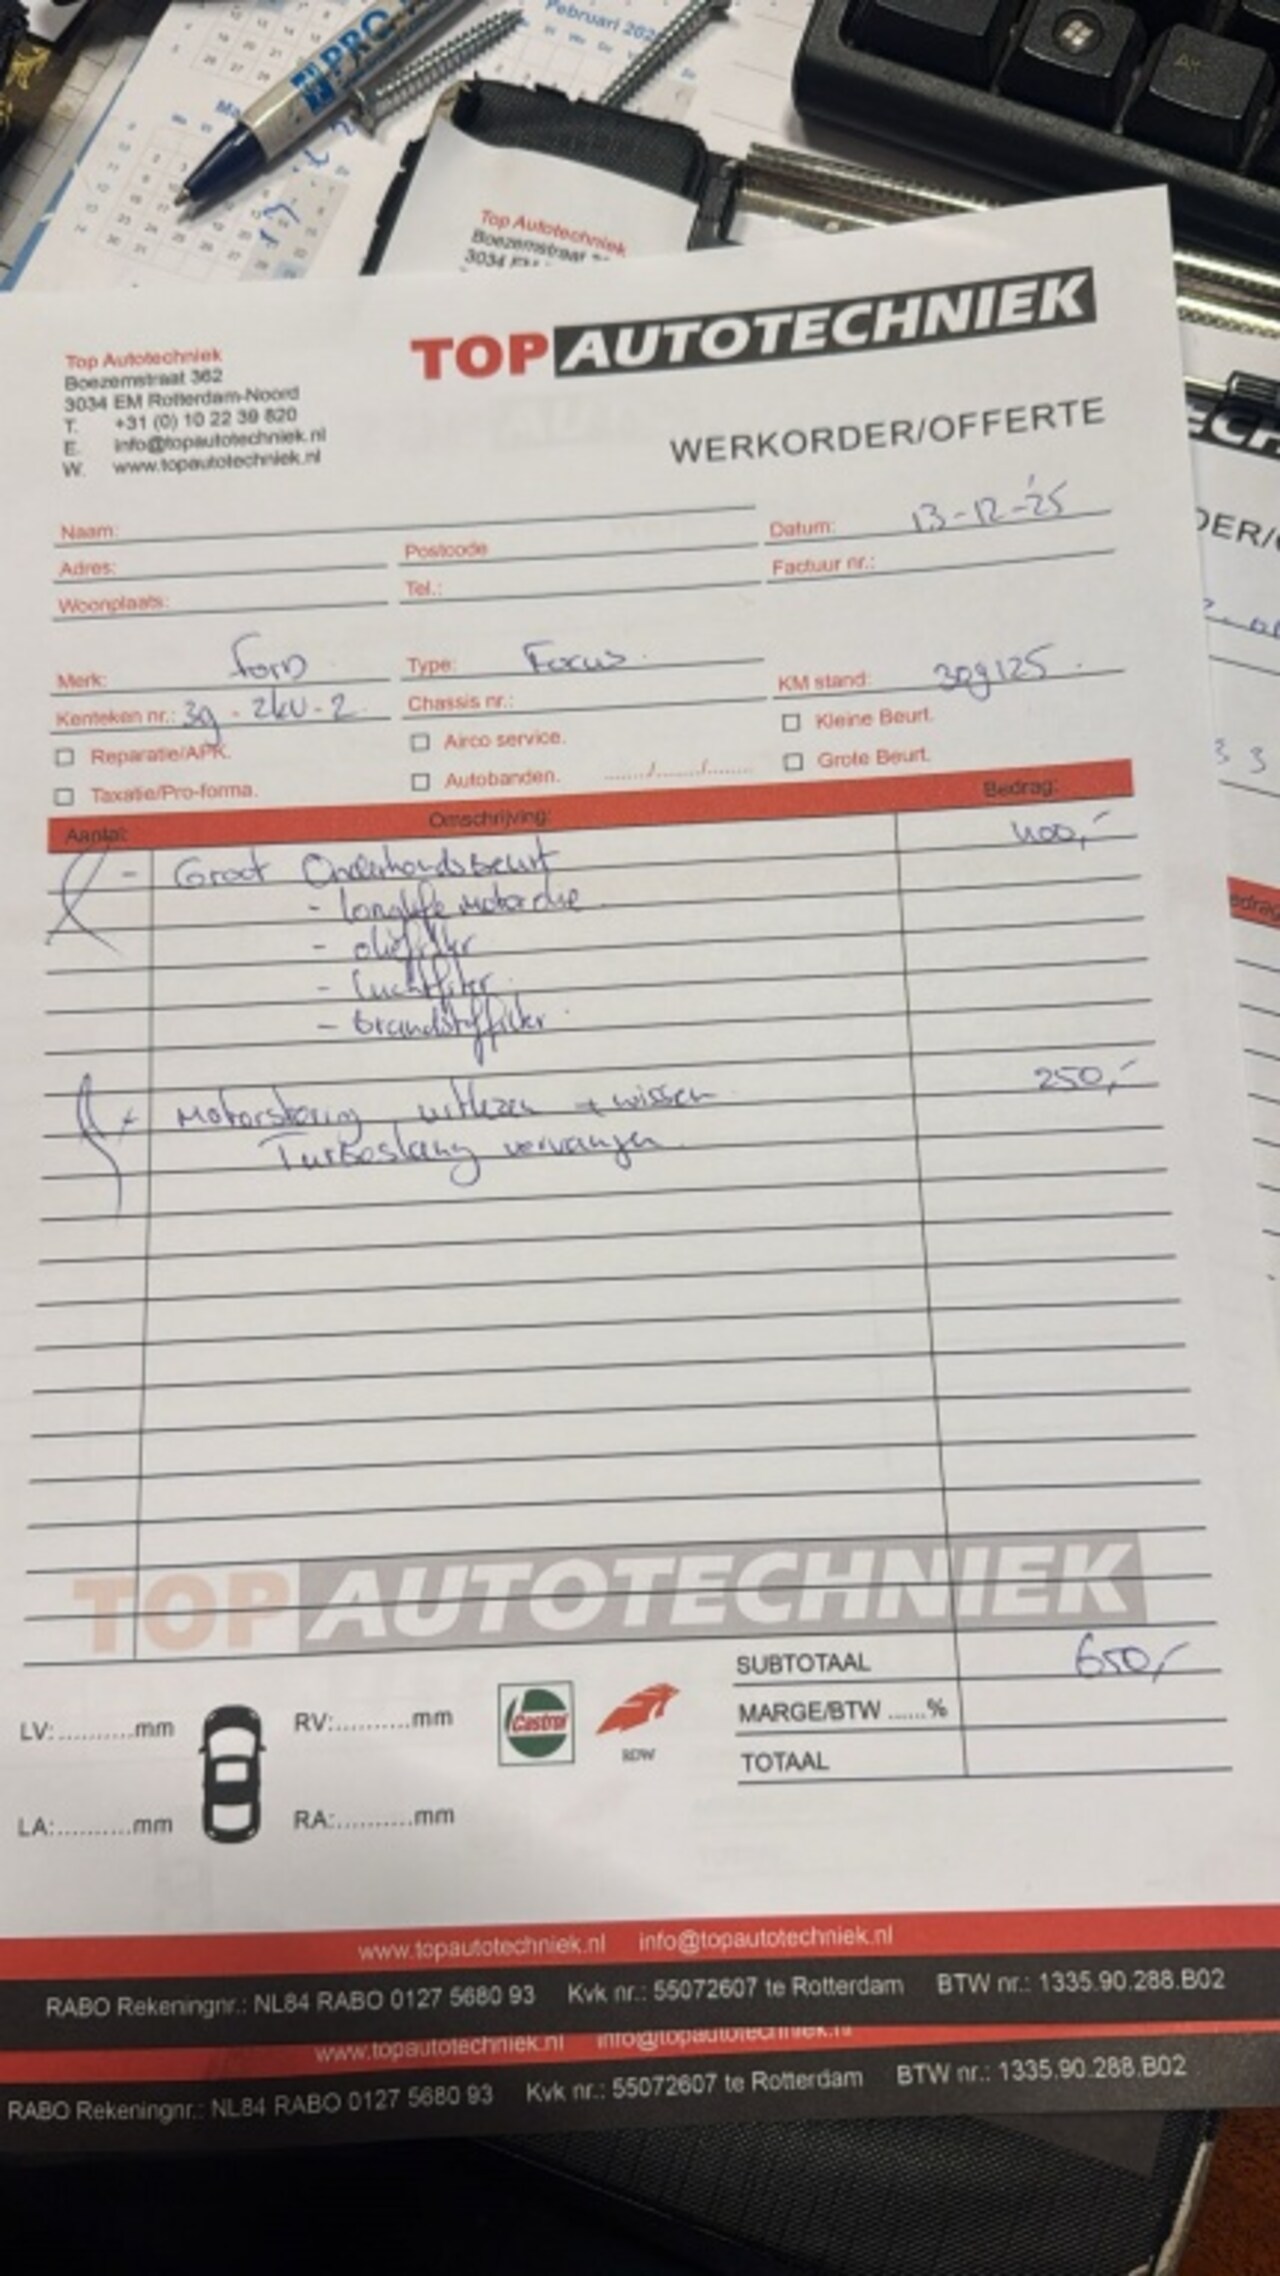 PRO
Februari 202
Top Autotechniek
Boezemstraat
3034 EM
TOP AUTOTECHNIEK
Top Autotechniek
Boezemstraat 362
3034 EM Rotterdam-Noord
T. +31 (0) 10 22 39 820
E. info@topautotechniek.nl
W. www.topautotechniek.nl
WERKORDER/OFFERTE
Naam:
Datum: 13-12-'25
Adres: Postcode
Factuur nr.:
Woonplaats: Tel.:
Merk: Ford Type: Focus KM stand: 309125
Kenteken nr.: 39-ZKV-2 Chassis nr.:
Reparatie/APK. Airco service. Kleine Beurt.
Taxatie/Pro-forma. Autobanden. ....../....../...... Grote Beurt.
Aantal: Omschrijving: Bedrag:
- Groot Onderhoudsbeurt 400,-
- longlife motorolie
- oliefilter
- luchtfilter
- brandstoffilter
Motorstoring uitlezen + wissen 250,-
Turboslang vervangen
TOP AUTOTECHNIEK
SUBTOTAAL 650,-
MARGE/BTW ......%
TOTAAL
LV:..........mm RV:..........mm
LA:..........mm RA:..........mm
Castrol
RDW
www.topautotechniek.nl info@topautotechniek.nl
RABO Rekeningnr.: NL84 RABO 0127 5680 93 Kvk nr.: 55072607 te Rotterdam BTW nr.: 1335.90.288.B02
www.topautotechniek.nl info@topautotechniek.nl
RABO Rekeningnr.: NL84 RABO 0127 5680 93 Kvk nr.: 55072607 te Rotterdam BTW nr.: 1335.90.288.B02